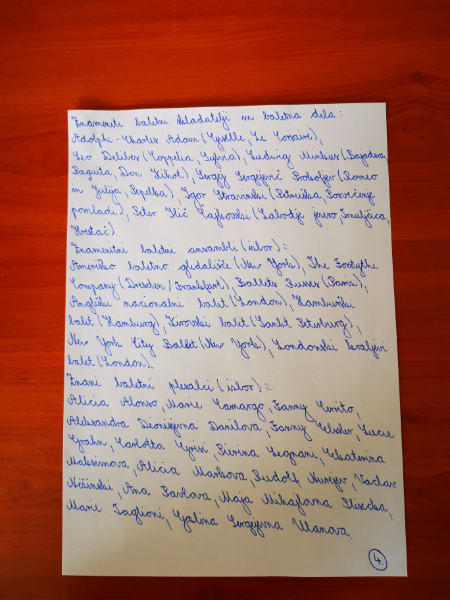 Znameniti baletni skladatelji in baletna dela:
Adolphe-Charles Adam (Giselle, Le Corsaire),
Leo Delibes (Coppelia, Sylvia), Ludwig Minkus (Bajadera,
Paquita, Don Kihot), Sergej Sergejevič Prokofjev (Romeo
in Julija, Pepelka), Igor Stravinski (Petruška, Posvečenje
pomladi), Peter Iljič Čajkovski (Labodje jezero, Trnuljčica,
Hrestač).
Znamenitni baletni ansambli (izbor):
Ameriško baletno gledališče (New York), The Forsythe
Company (Dresden / Frankfurt), Ballets Russes (Pariz),
Angleški nacionalni balet (London), Hamburški
balet (Hamburg), Kirovski balet (Sankt Peterburg),
New York City Ballet (New York), Londonski kraljevi
balet (London).
Znani baletni plesalci (izbor):
Alicia Alonso, Marie Camargo, Fanny Cerrito,
Aleksandra Dionisjevna Danilova, Fanny Elssler, Lucile
Grahn, Carlotta Grisi, Pierina Legnani, Ekaterina
Maksimova, Alicia Markova, Rudolf Nurejev, Vaclav
Nižinski, Ana Pavlova, Maja Mihajlovna Plisecka,
Marie Taglioni, Galina Sergejevna Ulanova.
4.